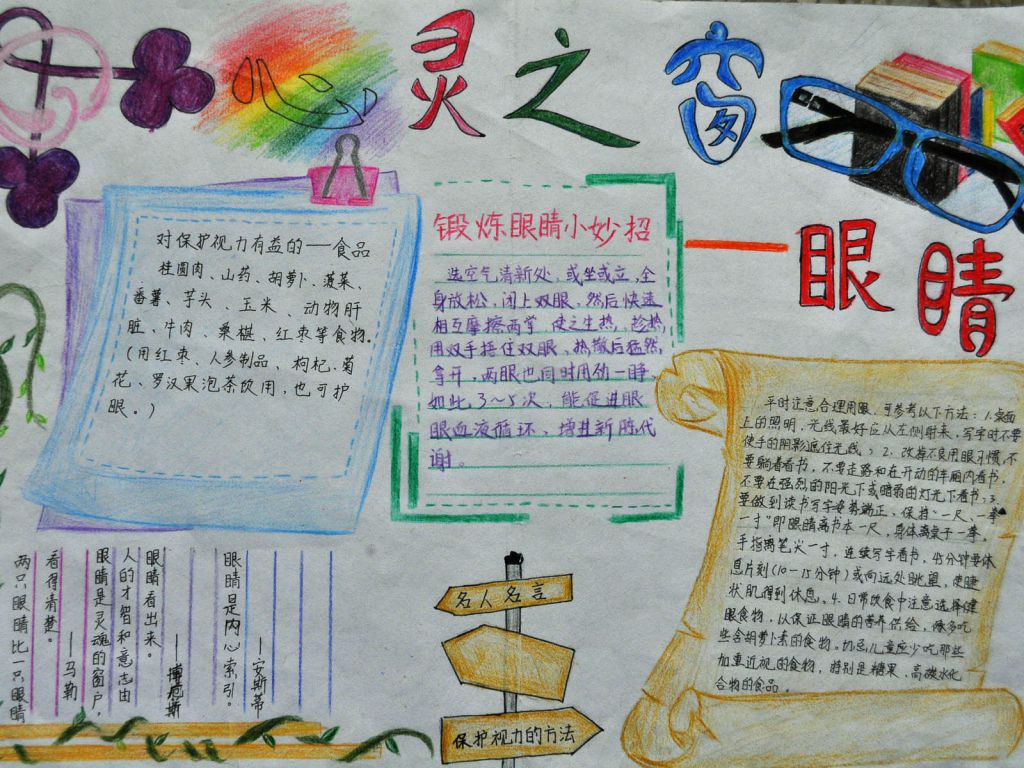 心灵之窗
——眼睛
对保护视力有益的——食品
桂圆肉、山药、胡萝卜、菠菜、
番薯、芋头、玉米、动物肝
脏、牛肉、桑椹、红枣等食物。
(用红枣、人参制品、枸杞、菊
花、罗汉果泡茶饮用,也可护
眼。)
锻炼眼睛小妙招
选空气清新处,或坐或立,全
身放松,闭上双眼,然后快速
相互摩擦两掌,使之生热,趁热
用双手捂住双眼,热散后猛然
拿开,两眼也同时用劲一睁,
如此3~5次,能促进眼
眼血液循环,增进新陈代
谢。
平时注意合理用眼,可参考以下方法:1.桌面
上的照明,光线最好应从左侧射来,写字时不要
使手的阴影遮住光线;2、改掉不良用眼习惯,不
要躺着看书,不要走路和在开动的车厢内看书,
不要在强烈的阳光下或暗弱的灯光下看书;3、
要做到读书写字姿势端正,保持"一尺、一拳
一寸"即眼睛离书本一尺,身体离桌子一拳,
手指离笔尖一寸,连续写字看书,45分钟要休
息片刻(10-15分钟)或向远处眺望,使睫
状肌得到休息。4.日常饮食中注意选择健
眼食物,以保证眼睛的营养供给,像多吃
些含胡萝卜素的食物。切忌儿童应少吃那些
加重近视的食物,特别是糖果、高碳水化
合物的食品。
眼睛是内心索引。
——安斯蒂
眼睛是灵魂的窗户,
人的才智和意志由
眼睛看出来。
——博厄斯
两只眼睛比一只眼睛
看得清楚。
——马勒
名人名言
保护视力的方法